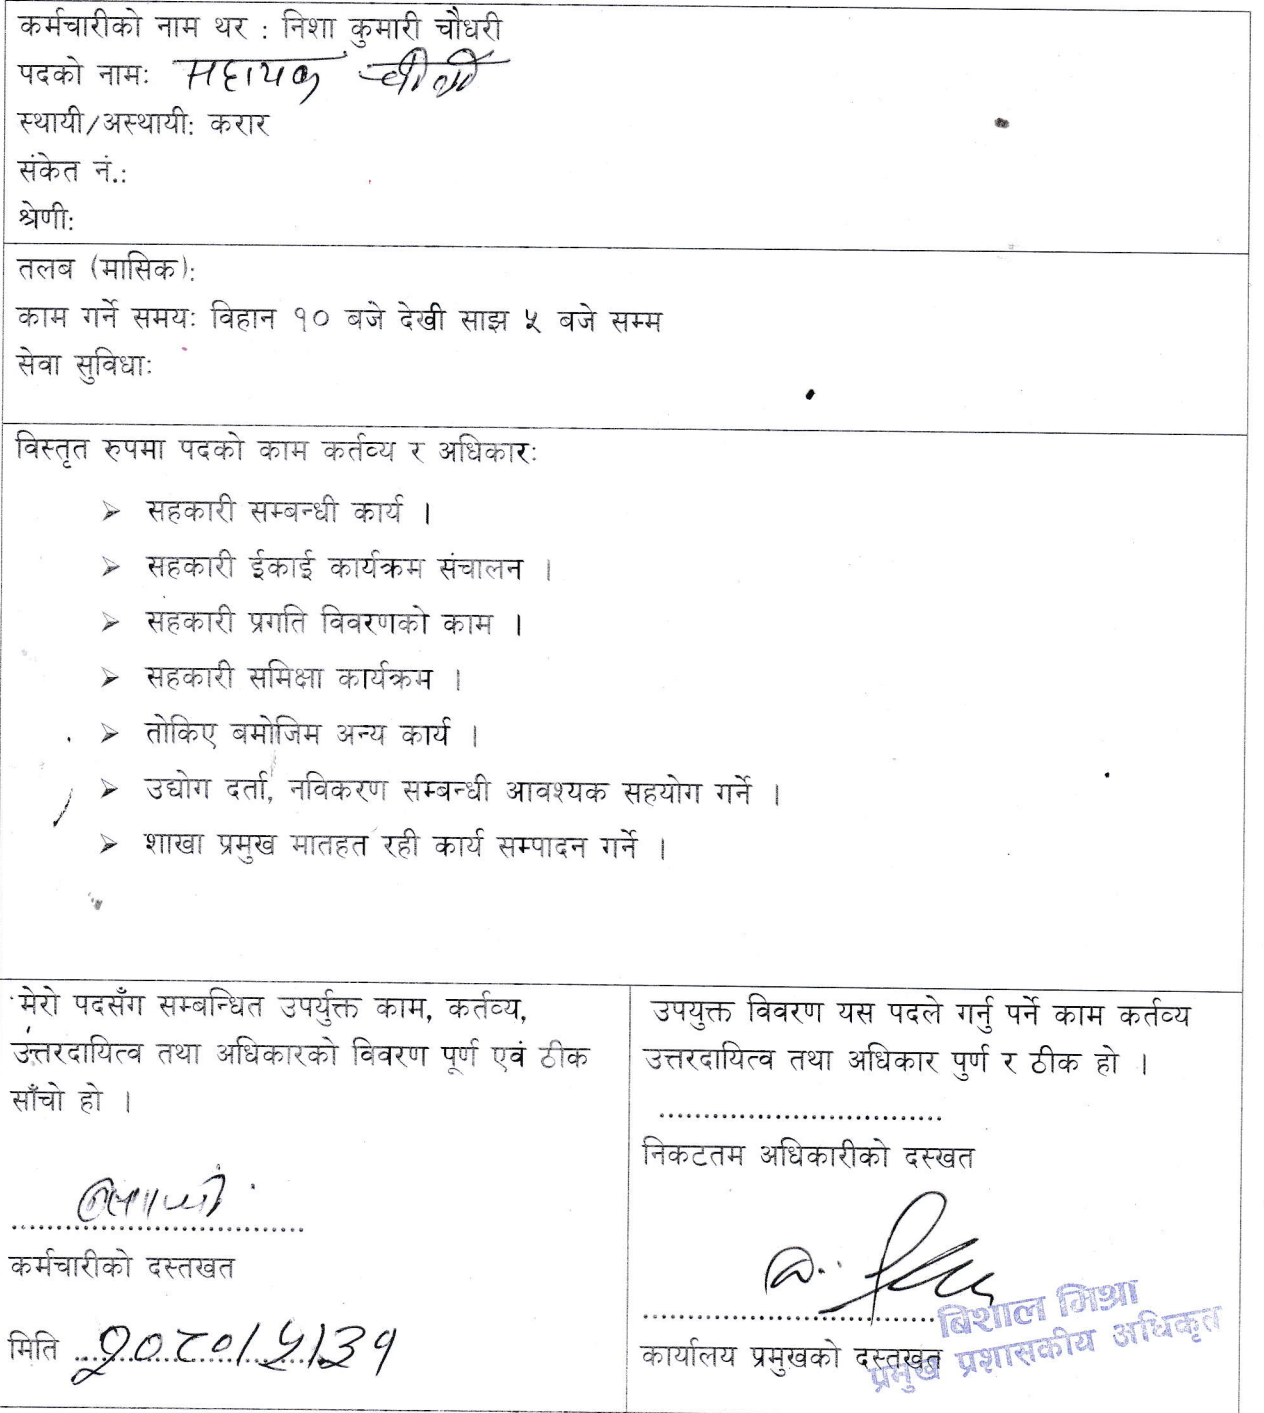 कर्मचारीको नाम थर : निशा कुमारी चौधरी
पदको नामः सहायक चौथो
स्थायी/अस्थायी: करार
संकेत नं.:
श्रेणी:
तलब (मासिक):
काम गर्ने समयः विहान १० बजे देखी साझ ५ बजे सम्म
सेवा सुविधाः
विस्तृत रुपमा पदको काम कर्तव्य र अधिकारः
➢ सहकारी सम्बन्धी कार्य ।
➢ सहकारी ईकाई कार्यक्रम संचालन ।
➢ सहकारी प्रगति विवरणको काम ।
➢ सहकारी समिक्षा कार्यक्रम ।
➢ तोकिए बमोजिम अन्य कार्य ।
➢ उद्योग दर्ता, नविकरण सम्बन्धी आवश्यक सहयोग गर्ने ।
➢ शाखा प्रमुख मातहत रही कार्य सम्पादन गर्ने ।
मेरो पदसँग सम्बन्धित उपर्युक्त काम, कर्तव्य,
उत्तरदायित्व तथा अधिकारको विवरण पूर्ण एवं ठीक
साँचो हो ।
कर्मचारीको दस्तखत
मिति २०८०/५/३१
उपयुक्त विवरण यस पदले गर्नु पर्ने काम कर्तव्य
उत्तरदायित्व तथा अधिकार पुर्ण र ठीक हो ।
निकटतम अधिकारीको दस्खत
बिशाल मिश्रा
कार्यालय प्रमुखको दस्तखत
प्रमुख प्रशासकीय अधिकृत